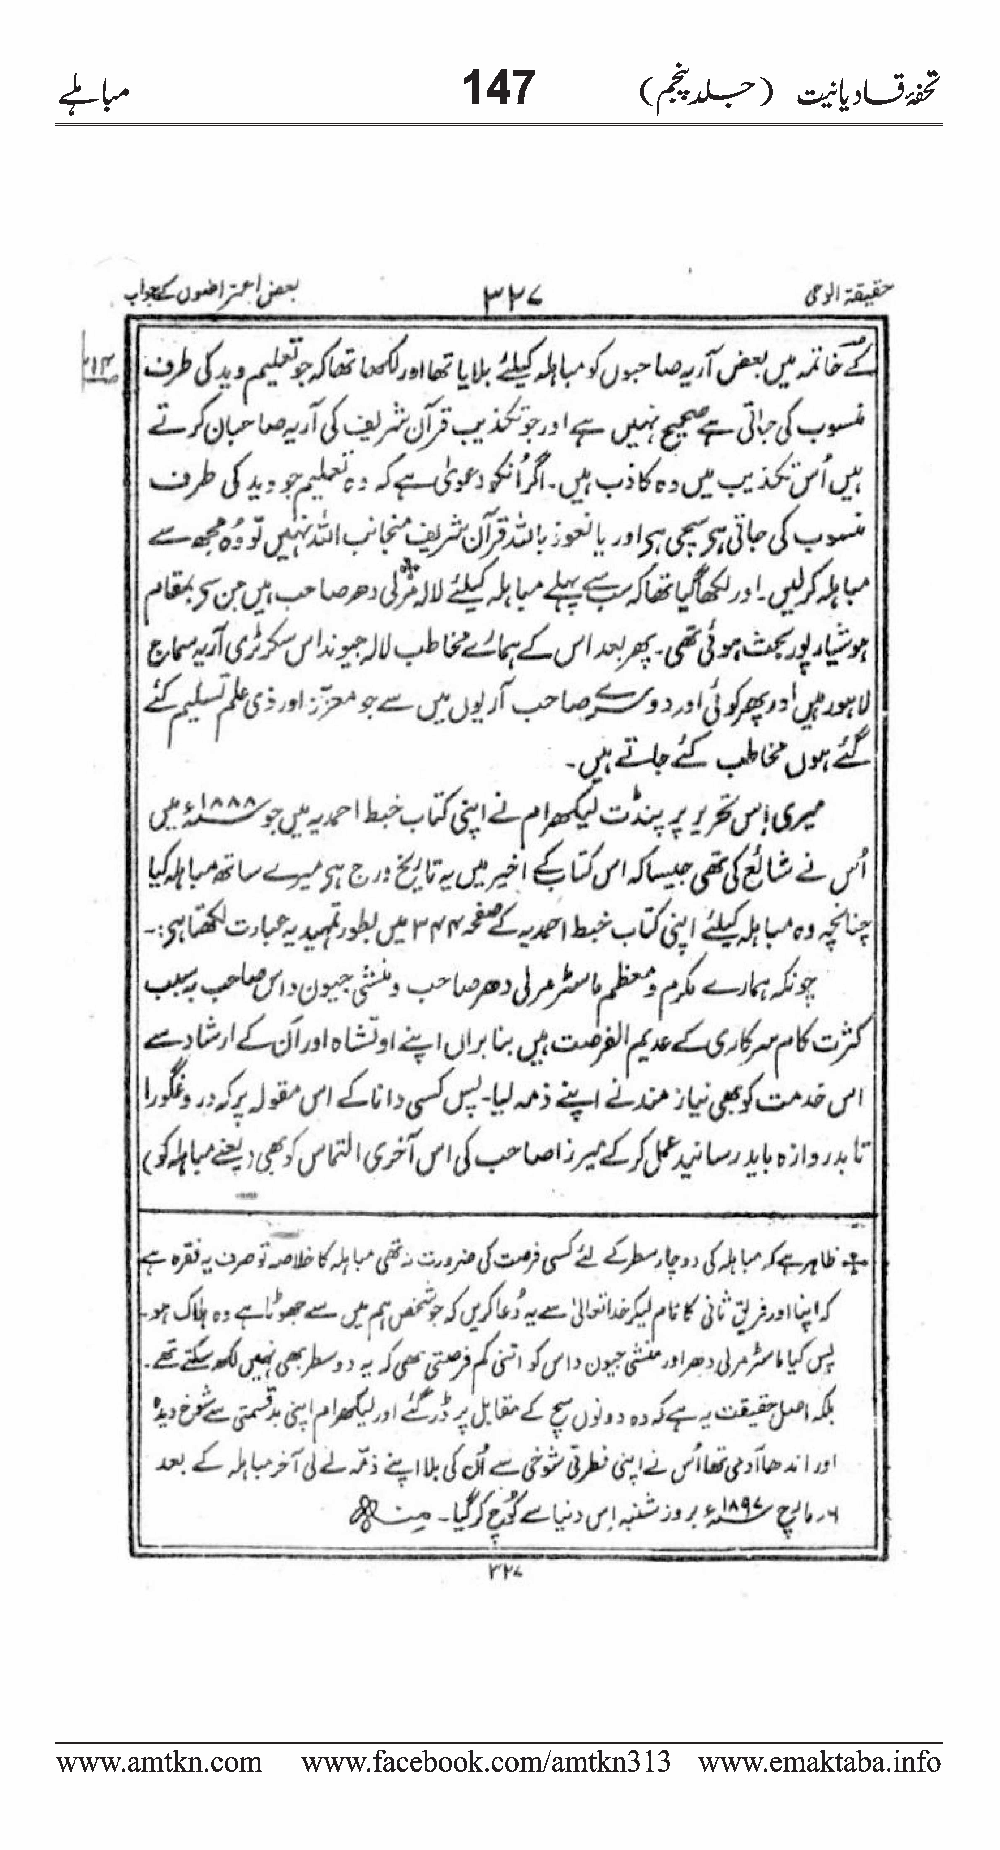 تحفۂ قادیانیت (جلد پنجم) 147 مباہلے
حقیقۃ الوحی ۳۲۷ بعض اعتراضوں کے جواب
کے خاتمہ میں بعض آریہ صاحبوں کو مباہلہ کیلئے بلایا تھا اور لکھا تھا کہ جو تعلیم وید کی طرف
منسوب کی جاتی ہے صحیح نہیں ہے اور جو تکذیب قرآن شریف کی آریہ صاحبان کرتے
ہیں اُس تکذیب میں وہ کاذب ہیں۔ اگر اُنکو دعویٰ ہے کہ وہ تعلیم جو وید کی طرف
منسوب کی جاتی ہی سچی ہی اور یا نعوذ باللہ قرآن شریف منجانب اللہ نہیں تو وُہ مجھ سے
مباہلہ کرلیں۔ اور لکھا گیا تھا کہ سب سے پہلے مباہلہ کیلئے لالہ مُرلی دھر صاحب ہیں جن سی بمقام
ہوشیارپور بحث ہوئی تھی۔ پھر بعد اس کے ہمارے مخاطب لالہ جیونداس سکرٹری آریہ سماج
لاہور ہیں اور پھر کوئی اور دوسرے صاحب آریوں میں سے جو معزّز اور ذی علم تسلیم کئے
گئے ہوں مخاطب کئے جاتے ہیں۔
میری اِس تحریر پر پنڈت لیکھرام نے اپنی کتاب خبط احمدیہ میں جو ۱۸۸۸ء میں
اُس نے شائع کی تھی جیسا کہ اس کتاب کے اخیر میں یہ تاریخ درج ہی میرے ساتھ مباہلہ کیا
چنانچہ وہ مباہلہ کیلئے اپنی کتاب خبط احمدیہ کے صفحہ ۳۴۴ میں بطور تمہید یہ عبارت لکھتا ہی:۔
چونکہ ہمارے مکرم و معظم ماسٹر مرلی دھر صاحب و منشی جیون داس صاحب بہ سبب
کثرت کام سرکاری کے عدیم الفرصت ہیں بنابراں اپنے اوتشاہ اور اُن کے ارشاد سے
اس خدمت کو بھی نیازمند نے اپنے ذمہ لیا۔ پس کسی دانا کے اس مقولہ پر کہ دروغگورا
تا بدروازہ باید رسانید عمل کرکے میرزا صاحب کی اس آخری التماس کو بھی (یعنے مباہلہ کو)
ظاہر ہے کہ مباہلہ کی دو چار سطر کے لئے کسی فرصت کی ضرورت نہ تھی مباہلہ کا خلاصہ تو صرف یہ فقرہ ہے
کہ اپنا اور فریق ثانی کا نام لیکر خدا تعالیٰ سے یہ دُعا کریں کہ جو شخص ہم میں سے جھوٹا ہے وہ ہلاک ہو۔
پس کیا ماسٹر مرلی دھر اور منشی جیون داس کو اتنی کم فرصتی تھی کہ یہ دو سطر بھی نہیں لکھ سکتے تھے۔
بلکہ اصل حقیقت یہ ہے کہ وہ دونوں سچ کے مقابل پر ڈر گئے اور لیکھرام اپنی بدقسمتی سے شوخ دیدہ
اور اندھا آدمی تھا اُس نے اپنی فطرتی شوخی سے اُن کی بلا اپنے ذمّہ لے لی آخر مباہلہ کے بعد
۶ر مارچ ۱۸۹۷ء بروز شنبہ اِس دنیا سے کُوچ کر گیا۔ منہ
۳۲۷
www.amtkn.com www.facebook.com/amtkn313 www.emaktaba.info